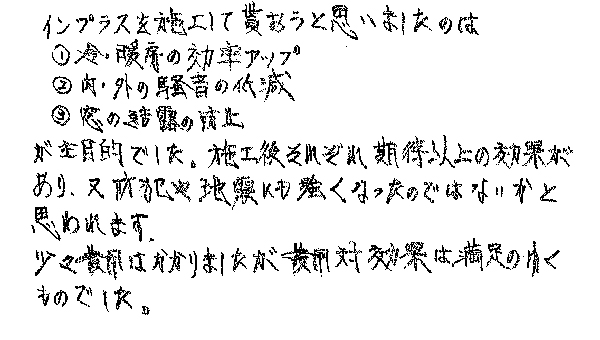 インプラスを施工して貰おうと思いましたのは
①冷・暖房の効率アップ
②内・外の騒音の低減
③窓の結露の防止
が主目的でした。施工後それぞれ期待以上の効果が
あり、又防犯や地震にも強くなったのではないかと
思われます。
少々費用はかかりましたが費用対効果は満足の行く
ものでした。